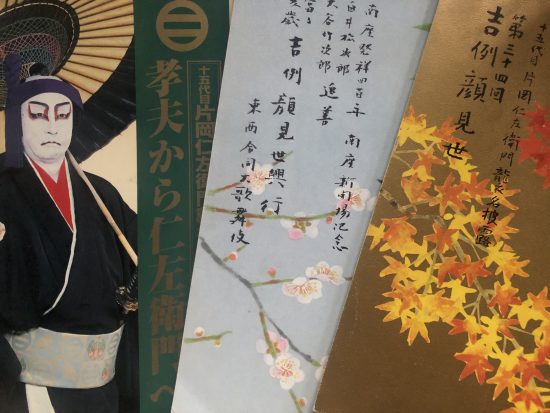 十五代目片岡仁左衛門
孝夫から仁左衛門へ
南座発祥四百年 南座新開場記念
白井松次郎
大谷竹次郎 追善
歳 吉例顔見世興行
東西合同大歌舞伎
十五代目片岡仁左衛門襲名披露
第三十四回
吉例顔見世